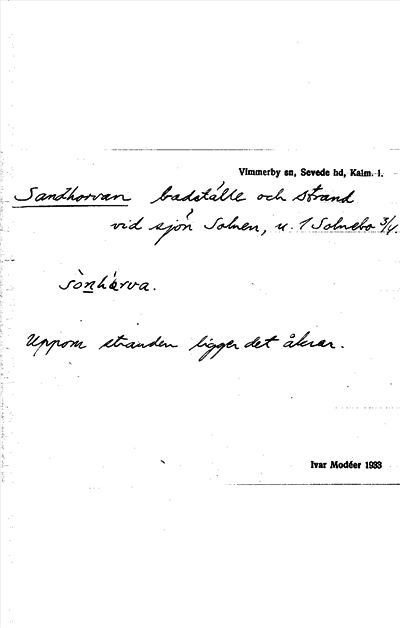 Vimmerby sn, Sevede hd, Kalm. l.
Sandhorvan badställe och strand
vid sjön Solnen, u. 1 Solnebo 3/4.
sònhárva.
Uppom stranden ligger det åkrar.
Ivar Modéer 1933